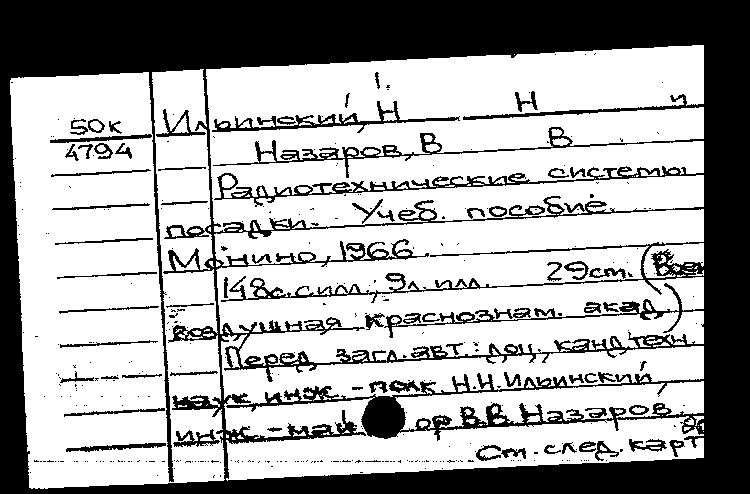 50к Ильинский, Н Н и
4794 Назаров, В В
Радиотехнические системы
посадки. Учеб. пособие.
Монино, 1966.
148с. с илл.; 9л. илл. 29cm. (Воен
воздушная краснознам. акад.)
Перед загл. авт.: доц., канд. техн.
наук, инж.-полк. Н.Н. Ильинский,
инж.-май ор В.В. Назаров.
См. след. карт